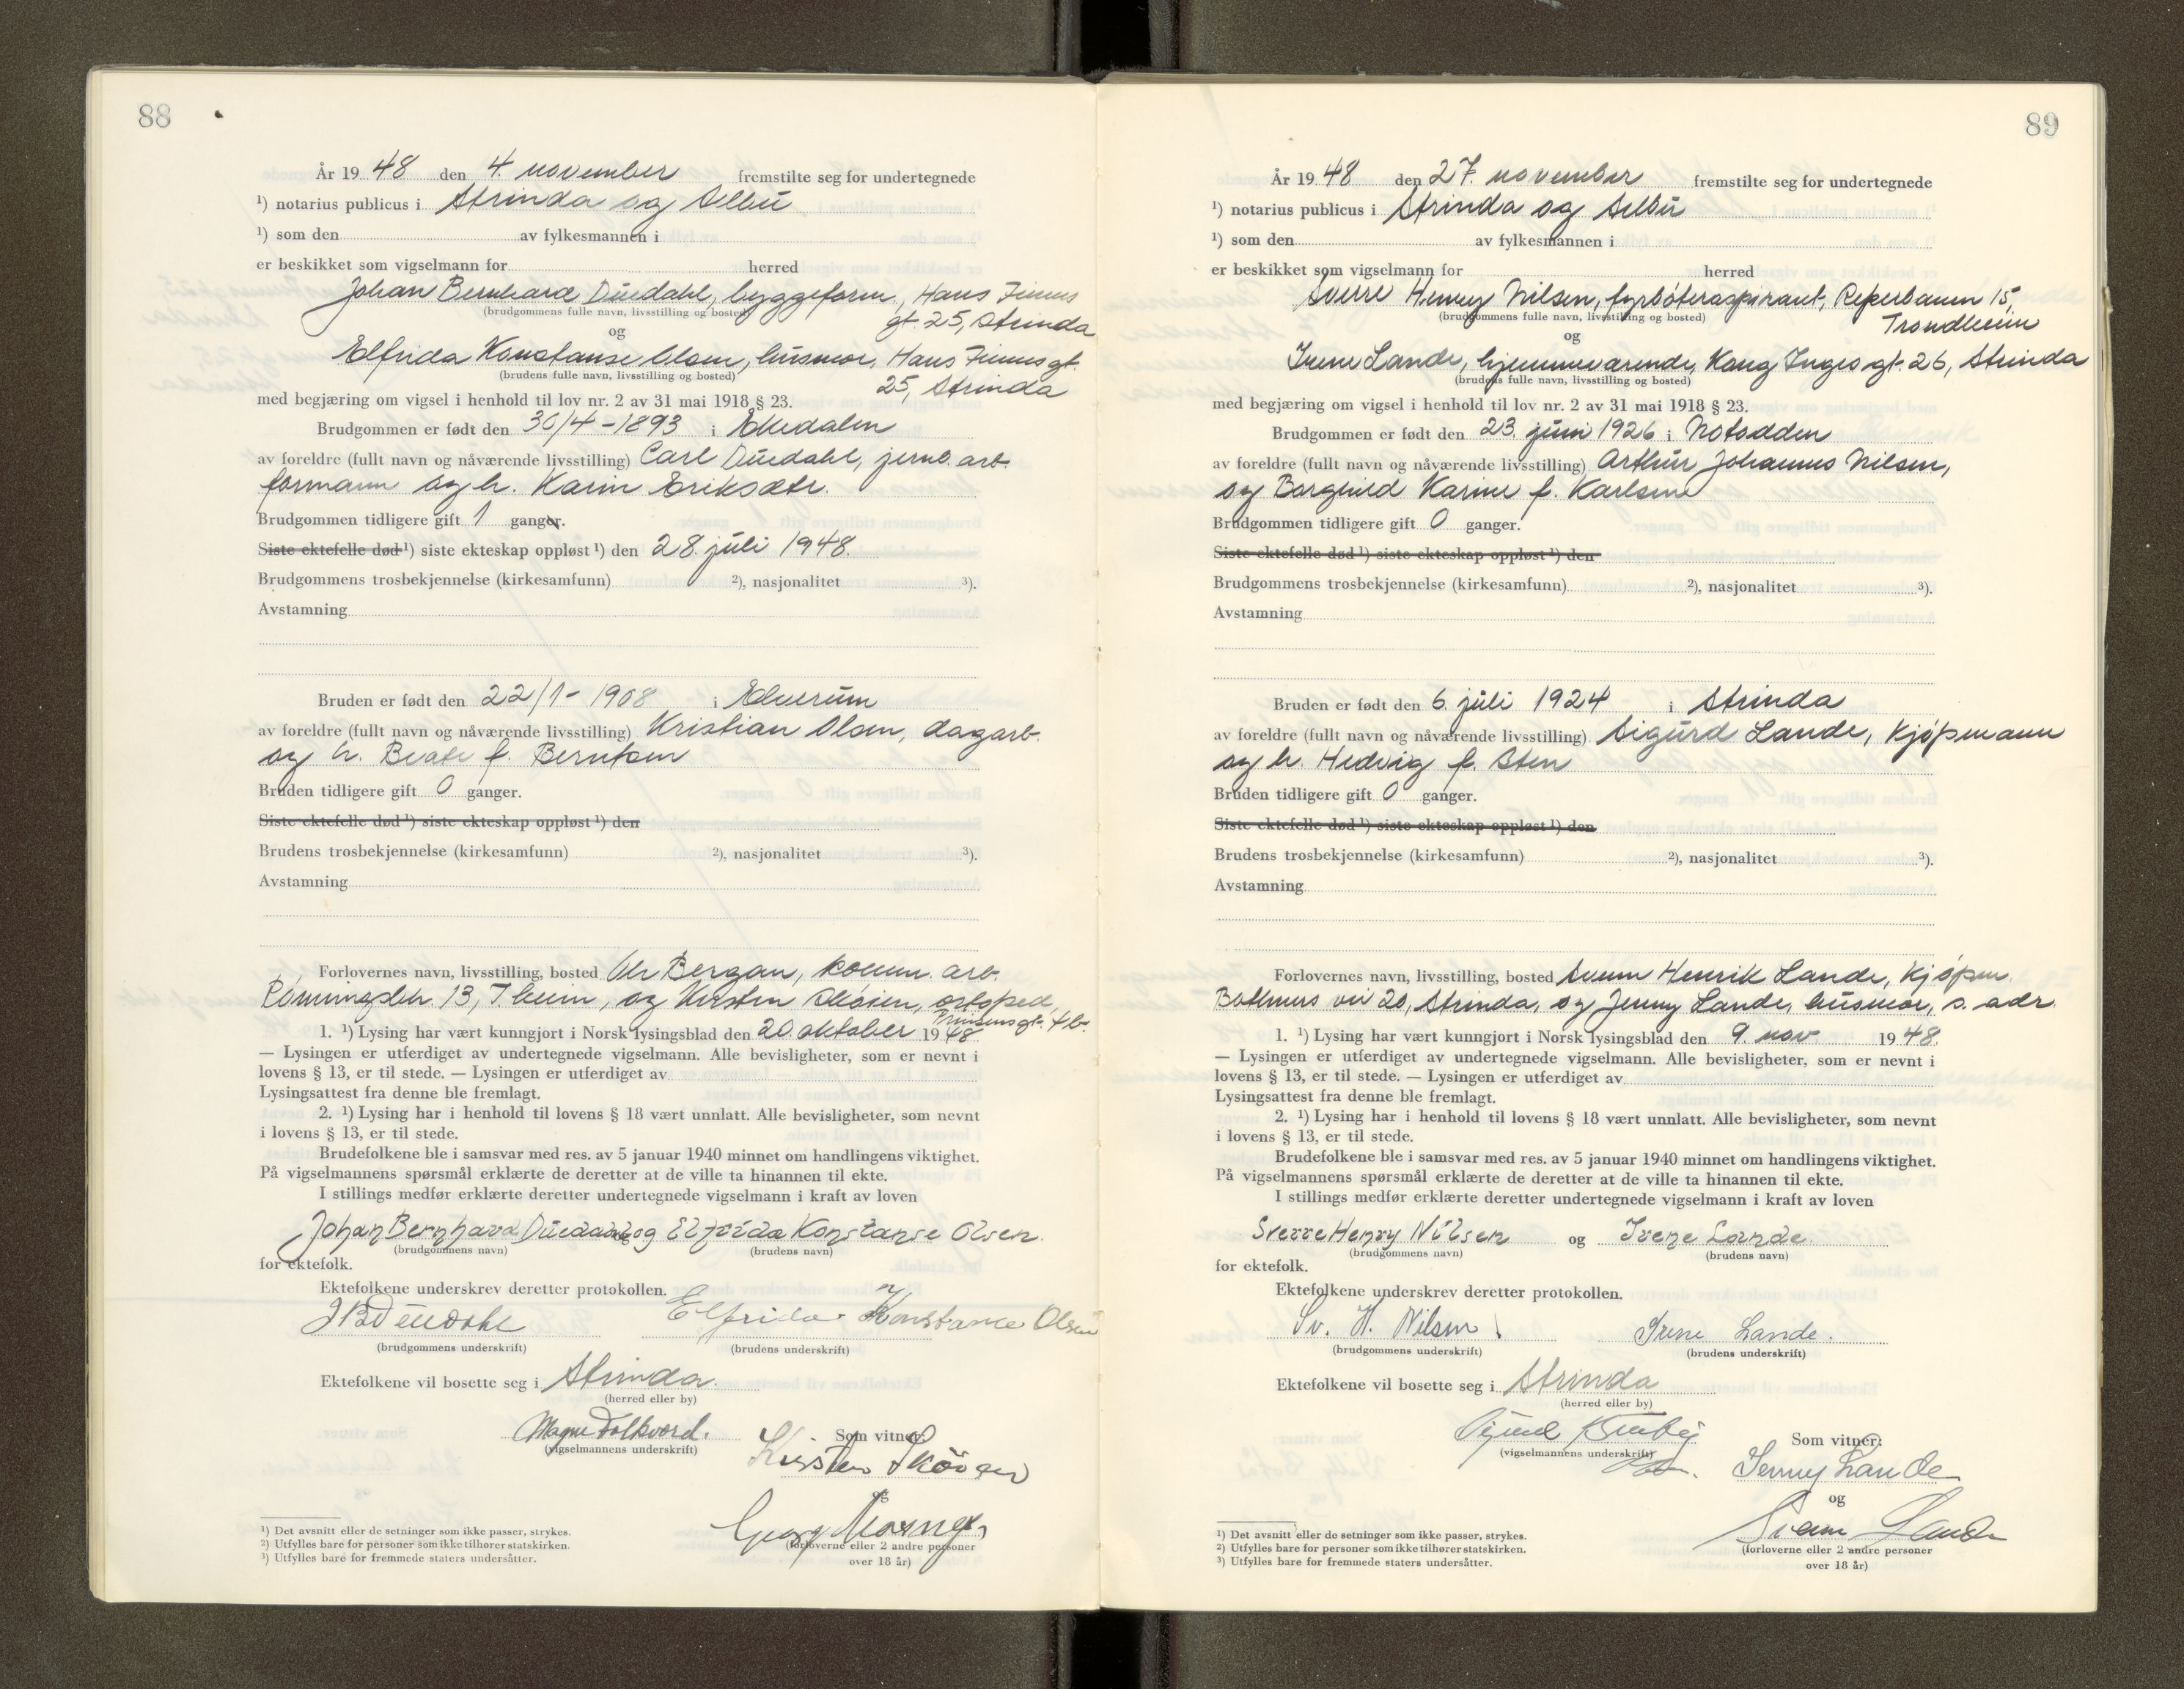 88
År 19 48 den 4. november fremstilte seg for undertegnede
¹) notarius publicus i Strinda og Selbu
¹) som den av fylkesmannen i
er beskikket som vigselmann for herred
Johan Bernhard Duedahl, byggeform., Hans Finnes
(brudgommens fulle navn, livsstilling og bosted)
gt. 25, Strinda
og
Elfrida Konstanse Olsen, husmor, Hans Finnes gt.
(brudens fulle navn, livsstilling og bosted)
25, Strinda
med begjæring om vigsel i henhold til lov nr. 2 av 31 mai 1918 § 23.
Brudgommen er født den 30/4-1893 i
av foreldre (fullt navn og nåværende livsstilling) Carl Duedahl, jernb. arb.
formann og h. Karin Eriksdtr.
Brudgommen tidligere gift 1 ganger.
Siste ektefelle død ¹) siste ekteskap oppløst ¹) den 28. juli 1948.
Brudgommens trosbekjennelse (kirkesamfunn) ²), nasjonalitet ³).
Avstamning
Bruden er født den 22/1-1908 i Elverum
av foreldre (fullt navn og nåværende livsstilling) Kristian Olsen, dagarb.
og h. Beate f. Berntsen
Bruden tidligere gift 0 ganger.
Siste ektefelle død ¹) siste ekteskap oppløst ¹) den
Brudens trosbekjennelse (kirkesamfunn) ²), nasjonalitet ³).
Avstamning
Forlovernes navn, livsstilling, bosted Ole Bergan, komm. arb.
13, T.heim, og Kirsten Skøien, ortoped,
Prinsensgt. 4b.
1. ¹) Lysing har vært kunngjort i Norsk lysingsblad den 20. oktober 1948
— Lysingen er utferdiget av undertegnede vigselmann. Alle bevisligheter, som er nevnt i
lovens § 13, er til stede. — Lysingen er utferdiget av
Lysingsattest fra denne ble fremlagt.
2. ¹) Lysing har i henhold til lovens § 18 vært unnlatt. Alle bevisligheter, som nevnt
i lovens § 13, er til stede.
Brudefolkene ble i samsvar med res. av 5 januar 1940 minnet om handlingens viktighet.
På vigselmannens spørsmål erklærte de deretter at de ville ta hinannen til ekte.
I stillings medfør erklærte deretter undertegnede vigselmann i kraft av loven
Johan Bernhard Duedahl og Elfrida Konstanse Olsen.
(brudgommens navn) (brudens navn)
for ektefolk.
Ektefolkene underskrev deretter protokollen.
JB Duedahl Elfrida Konstance Olsen
(brudgommens underskrift) (brudens underskrift)
Ektefolkene vil bosette seg i Strinda.
(herred eller by)
Magne Folkvord.
(vigselmannens underskrift)
Som vitner:
Kirsten Skøien
og
Georg
(forloverne eller 2 andre personer
over 18 år)
¹) Det avsnitt eller de setninger som ikke passer, strykes.
²) Utfylles bare for personer som ikke tilhører statskirken.
³) Utfylles bare for fremmede staters undersåtter.
89
År 19 48 den 27. november fremstilte seg for undertegnede
¹) notarius publicus i Strinda og Selbu
¹) som den av fylkesmannen i
er beskikket som vigselmann for herred
Sverre Henry Nilsen, fyrbøteraspirant, Reperbanen 15,
(brudgommens fulle navn, livsstilling og bosted)
Trondheim
og
Irene Lande, hjemmeværende, Kong Inges gt. 26, Strinda
(brudens fulle navn, livsstilling og bosted)
med begjæring om vigsel i henhold til lov nr. 2 av 31 mai 1918 § 23.
Brudgommen er født den 23. juni 1926 i Notodden
av foreldre (fullt navn og nåværende livsstilling) Arthur Johannes Nilsen,
og Borghild Karine f. Karlsen
Brudgommen tidligere gift 0 ganger.
Siste ektefelle død ¹) siste ekteskap oppløst ¹) den
Brudgommens trosbekjennelse (kirkesamfunn) ²), nasjonalitet ³).
Avstamning
Bruden er født den 6. juli 1924 i Strinda
av foreldre (fullt navn og nåværende livsstilling) Sigurd Lande, kjøpmann
og h. Hedvig f. Sten
Bruden tidligere gift 0 ganger.
Siste ektefelle død ¹) siste ekteskap oppløst ¹) den
Brudens trosbekjennelse (kirkesamfunn) ²), nasjonalitet ³).
Avstamning
Forlovernes navn, livsstilling, bosted Svenn Henrik Lande, kjøpm.
vei 20, Strinda, og Jenny Lande, husmor, s. adr.
1. ¹) Lysing har vært kunngjort i Norsk lysingsblad den 9. nov. 1948.
— Lysingen er utferdiget av undertegnede vigselmann. Alle bevisligheter, som er nevnt i
lovens § 13, er til stede. — Lysingen er utferdiget av
Lysingsattest fra denne ble fremlagt.
2. ¹) Lysing har i henhold til lovens § 18 vært unnlatt. Alle bevisligheter, som nevnt
i lovens § 13, er til stede.
Brudefolkene ble i samsvar med res. av 5 januar 1940 minnet om handlingens viktighet.
På vigselmannens spørsmål erklærte de deretter at de ville ta hinannen til ekte.
I stillings medfør erklærte deretter undertegnede vigselmann i kraft av loven
Sverre Henry Nilsen og Irene Lande.
(brudgommens navn) (brudens navn)
for ektefolk.
Ektefolkene underskrev deretter protokollen.
Sv. H. Nilsen Irene Lande.
(brudgommens underskrift) (brudens underskrift)
Ektefolkene vil bosette seg i Strinda
(herred eller by)
(vigselmannens underskrift)
Som vitner:
Jenny Lande
og
Svenn Lande
(forloverne eller 2 andre personer
over 18 år)
¹) Det avsnitt eller de setninger som ikke passer, strykes.
²) Utfylles bare for personer som ikke tilhører statskirken.
³) Utfylles bare for fremmede staters undersåtter.